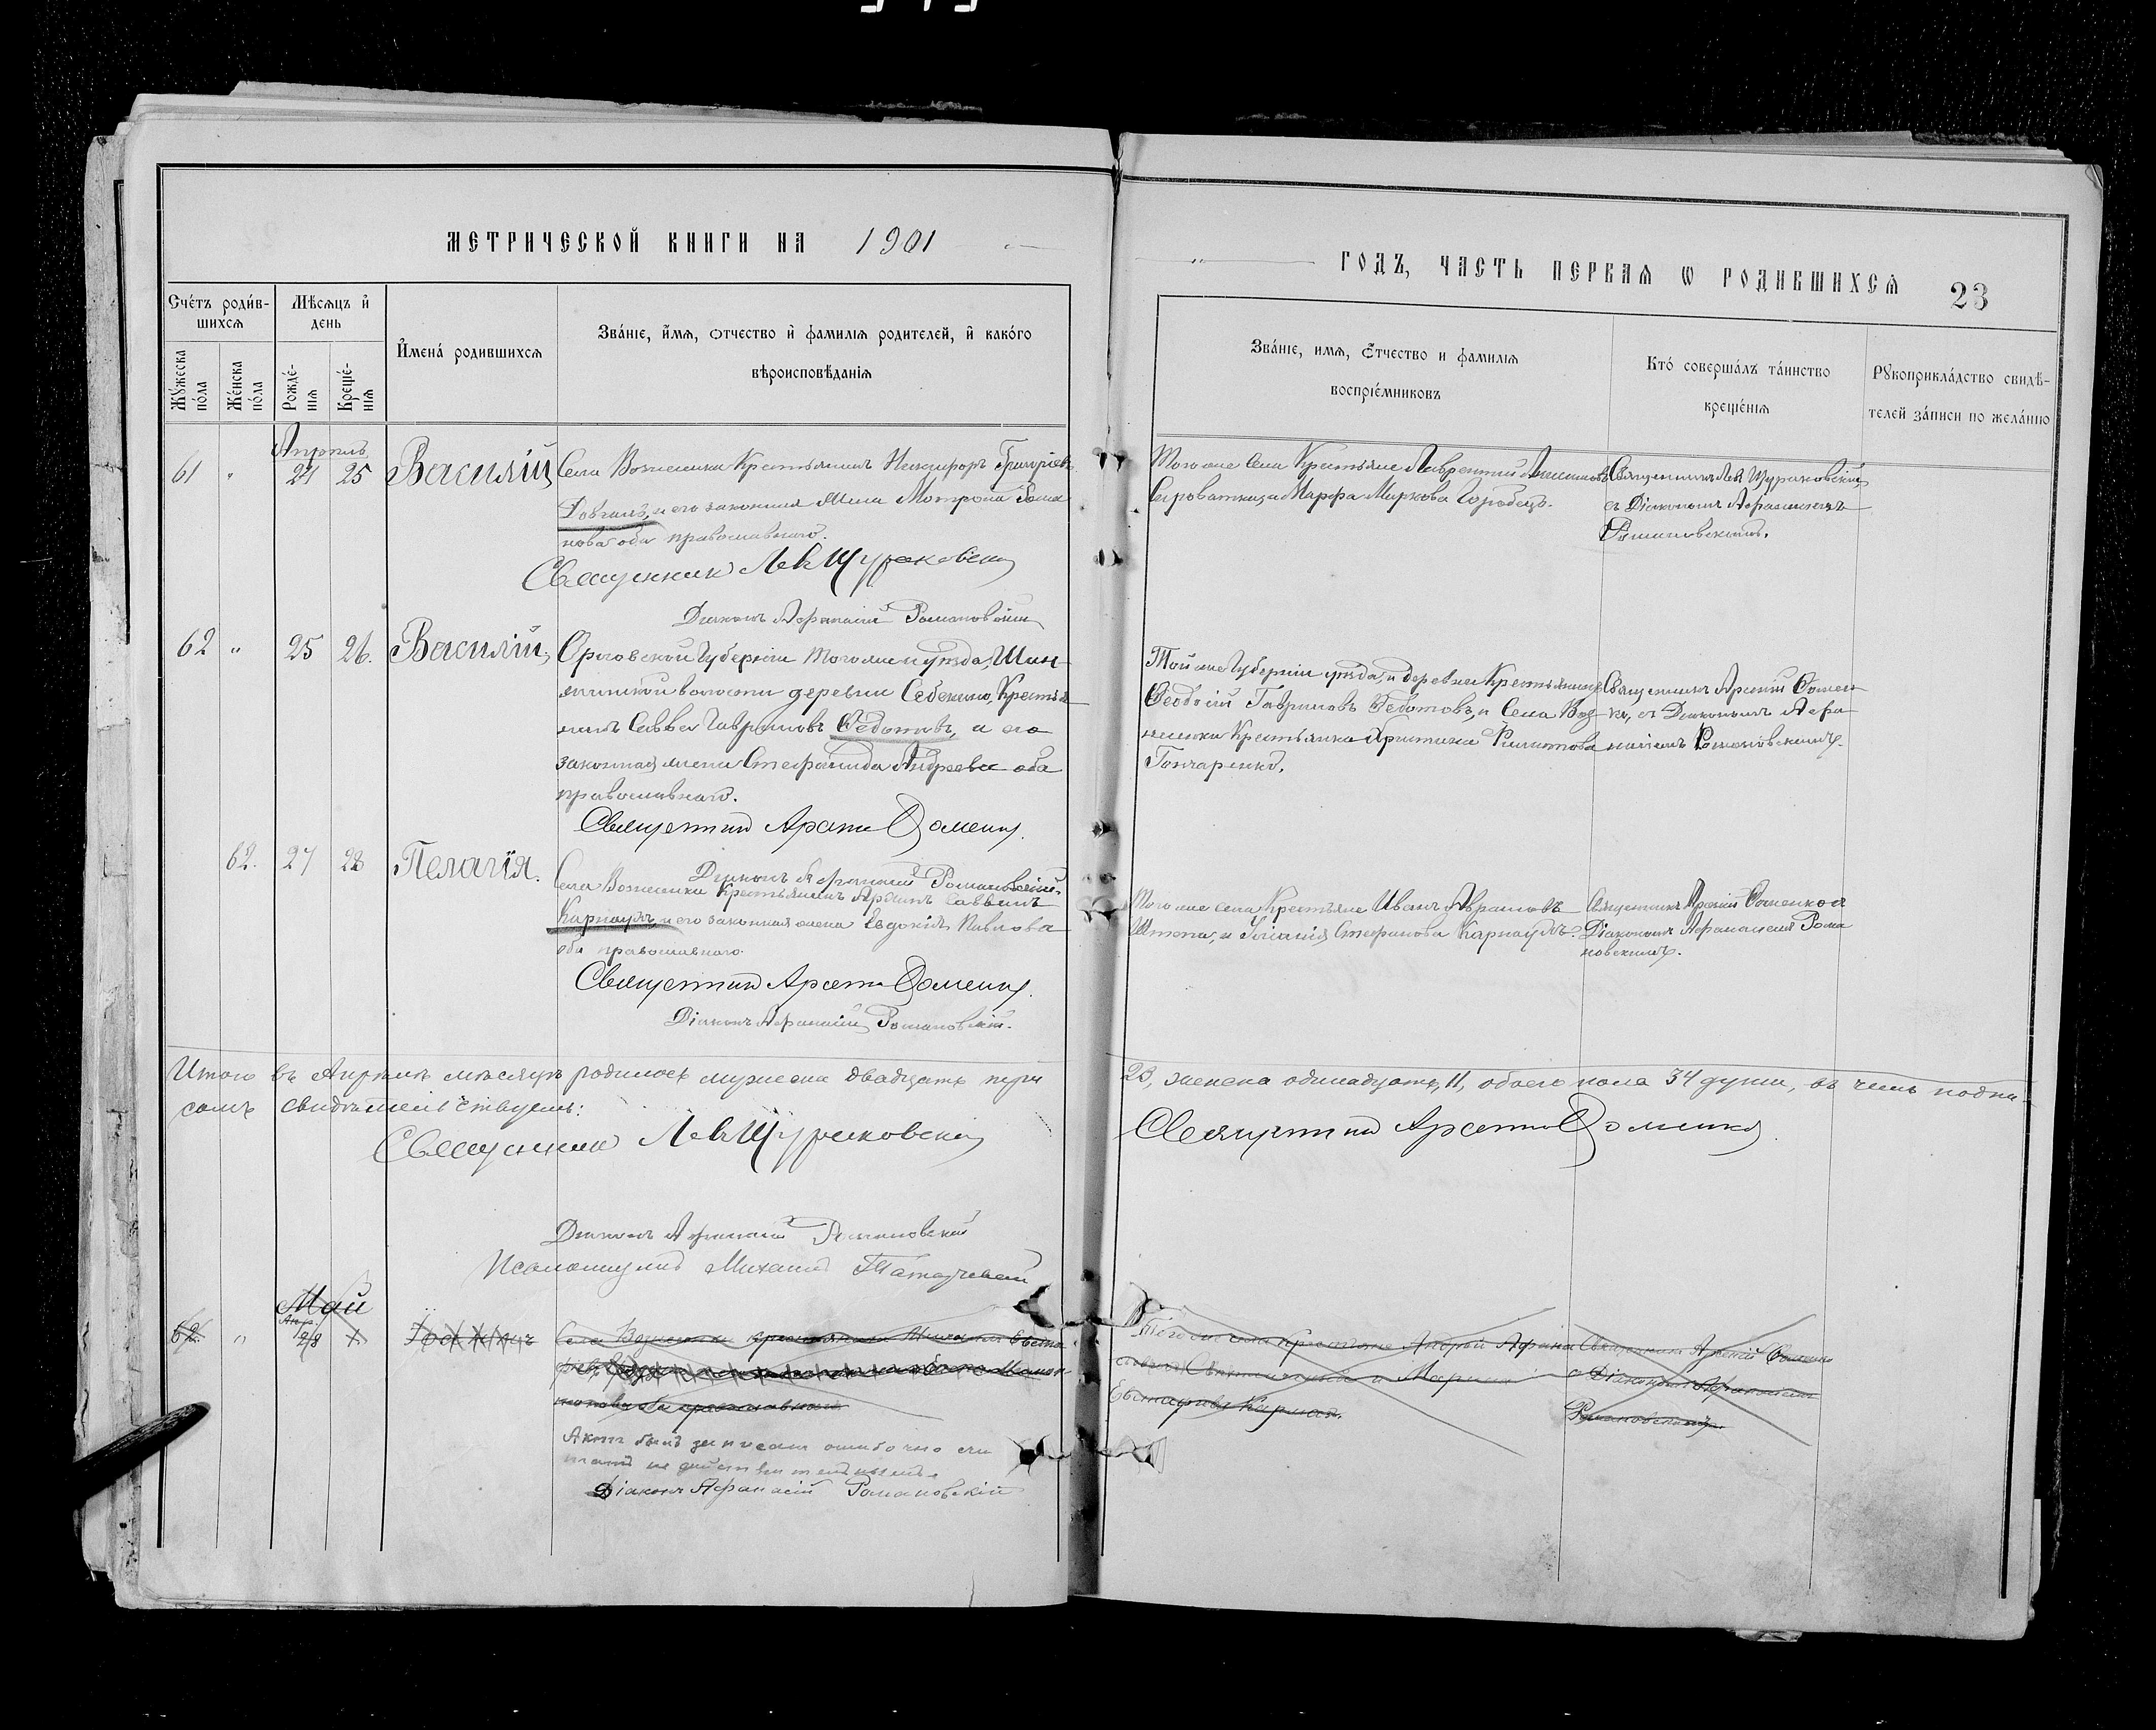 МЕТРИЧЕСКОЙ КНИГИ НА 1901
ГОДЪ, ЧАСТЬ ПЕРВАЯ Ѡ РОДИВШИХСЯ 23
Счетъ родив-
шихся
Мѣсяцъ и
день
Мужеска
пола
Женска
пола
Рожде-
нія
Креще-
нія
Имена родившихся
Званіе, имя, отчество и фамилія родителей, и какого
вѣроисповѣданія
Званіе, имя, отчество и фамилія
воспріемниковъ
Кто совершалъ таинство
крещенія
Рукоприкладство свидѣ-
телей записи по желанію
Апрѣль
61 " 24 25 Василій
Села Вознесенки Крестьянинъ Никифоръ Григоріевъ
Довгаль, и его законная жена Матрона Рома
нова оба православнаго.
Священникъ Левъ Щураковскій
Діаконъ Афанасій Романовскій
Того же села Крестьяне Лаврентій
Сыроватка, и Марфа Маркова Горобець.
Священникъ Левъ Щураковскій
съ Діакономъ Афанасіемъ
Романовскимъ.
62 " 25 26. Василій,
Орловской Губерніи того же уѣзда,
волости деревни Крестья
нинъ Савва Гавриловъ Федотовъ, и его
законная жена Стефанида Андреева оба
православнаго.
Священникъ Арсеній Фоменко.
Діаконъ Афанасій Романовскій.
Той же Губерніи уѣзда, и деревни Крестьянинъ
Феодосій Гавриловъ Федотовъ, и Села Воз
несенки Крестьянка Христина Филиппова
Гончаренко.
Священникъ Арсеній Фомен
ко, съ Діакономъ Афа
насіемъ Романовскимъ.
62. 27 28 Пелагія.
Села Вознесенки Крестьянинъ Саввинъ
Карнаухъ, и его законная жена Евдокія Павлова
оба православнаго.
Священникъ Арсеній Фоменко.
Діаконъ Афанасій Романовскій.
Того же села Крестьяне Иванъ Авраамовъ
Штепа, и Стефанова Карнаухъ.
Священникъ Арсеній Фоменко съ
Діакономъ Афанасіемъ Рома
новскимъ.
Итого въ Апрѣлѣ мѣсяцѣ родилось мужеска двадцать три
23, женска одинадцать, 11, обоего пола 34 души, въ чемъ подпи-
сомъ свидѣтельствуемъ:
Священникъ Левъ Щураковскій
Священникъ Арсеній Фоменко
Діаконъ Афанасій Романовскій
Псаломщикъ Михаилъ
Май
62. " Апр. 28 1
Села Вознесенки крестьянинъ
оба православнаго
Того же села крестьяне Андрей Афана
и Марина
Евстафіева
Священникъ Арсеній Фоменко
съ Діакономъ Афанасіемъ
Романовскимъ.
Актъ былъ записанъ ошибочно счи
тать не дѣйствительнымъ
Діаконъ Афанасій Романовскій